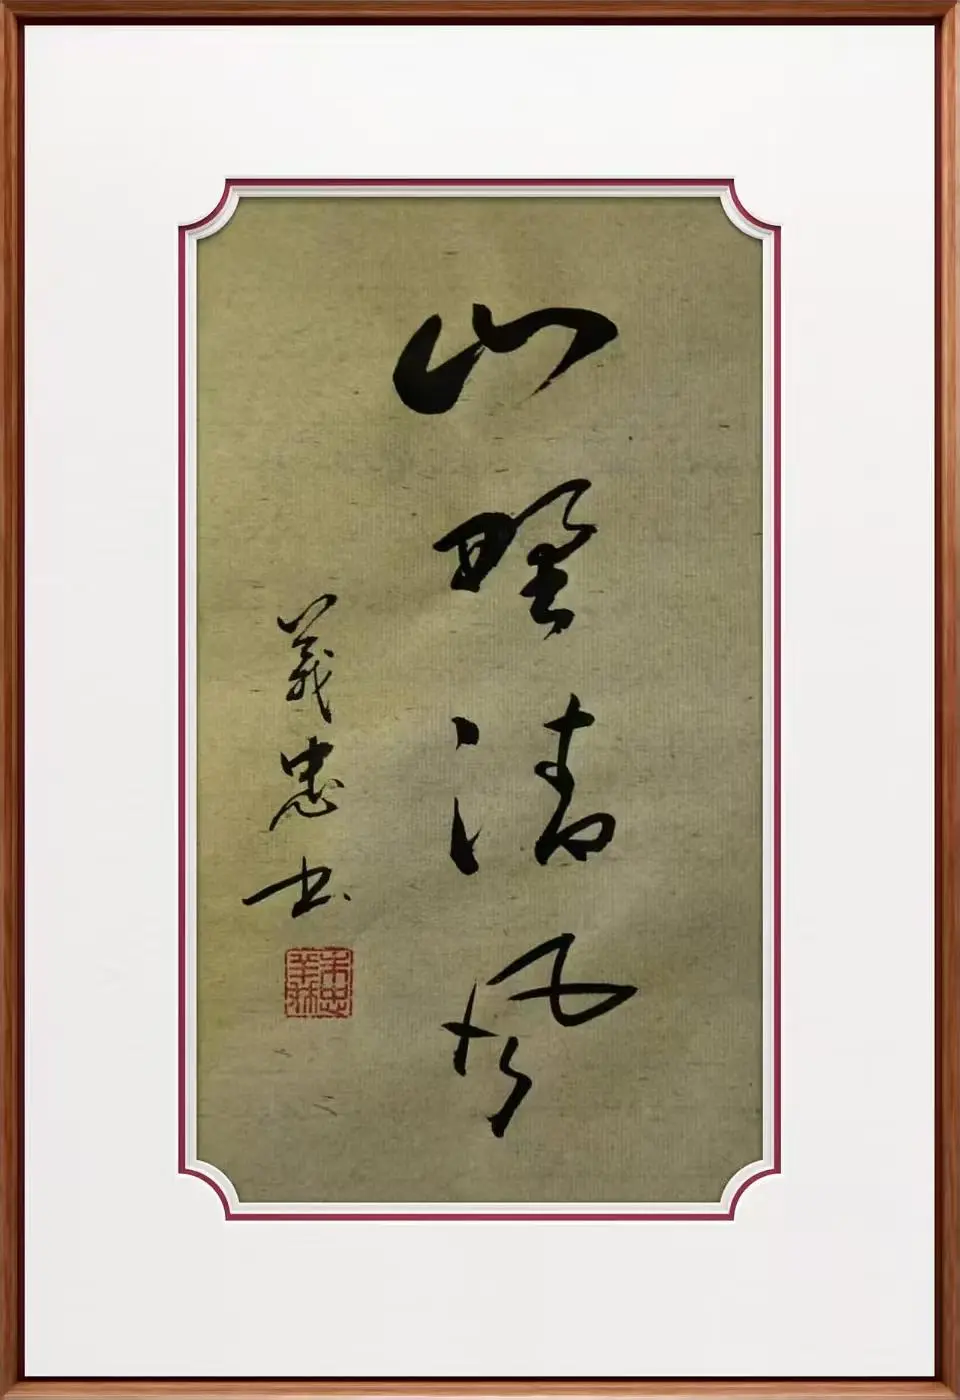 山野清风
義忠书